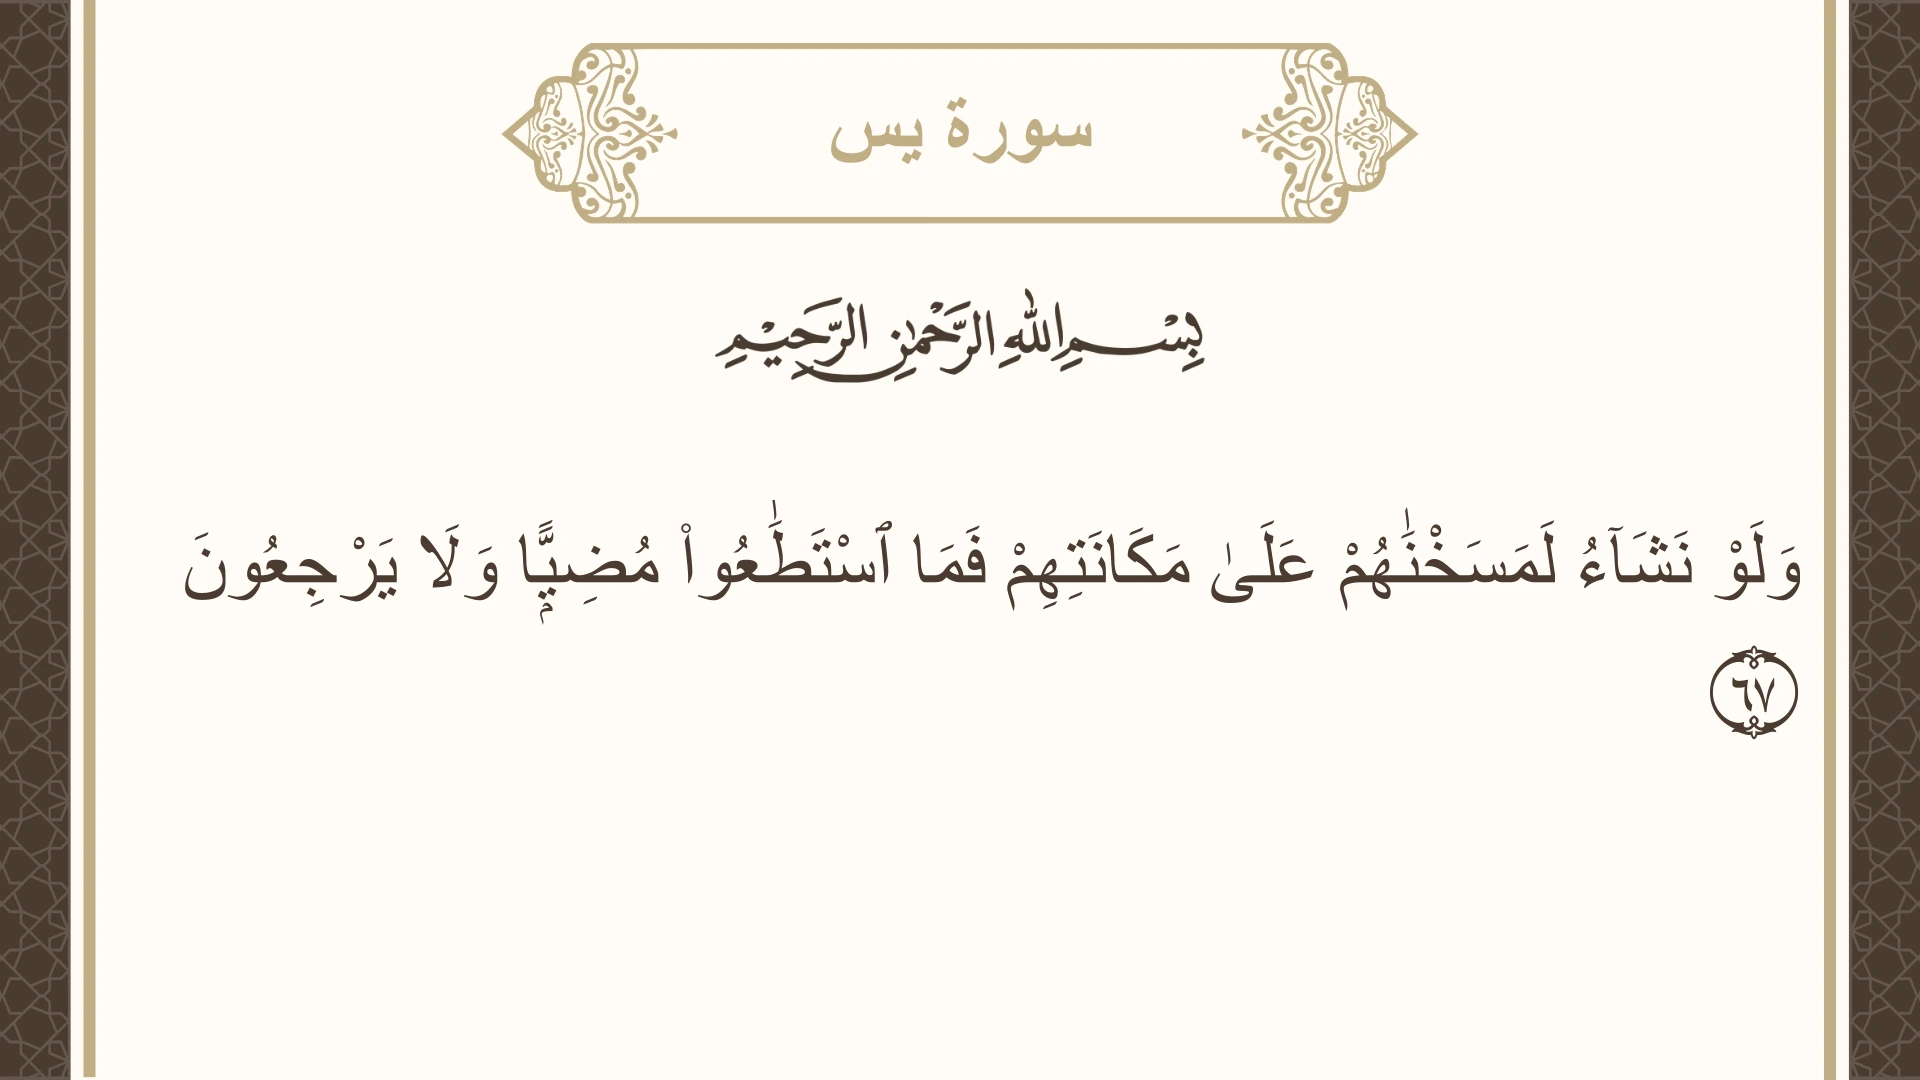 سورة يس
بِسْمِ اللهِ الرَّحْمٰنِ الرَّحِيْمِ
وَلَوْ نَشَآءُ لَمَسَخْنَٰهُمْ عَلَىٰ مَكَانَتِهِمْ فَمَا ٱسْتَطَٰعُوا۟ مُضِيًّۭا وَلَا يَرْجِعُونَ
٦٧